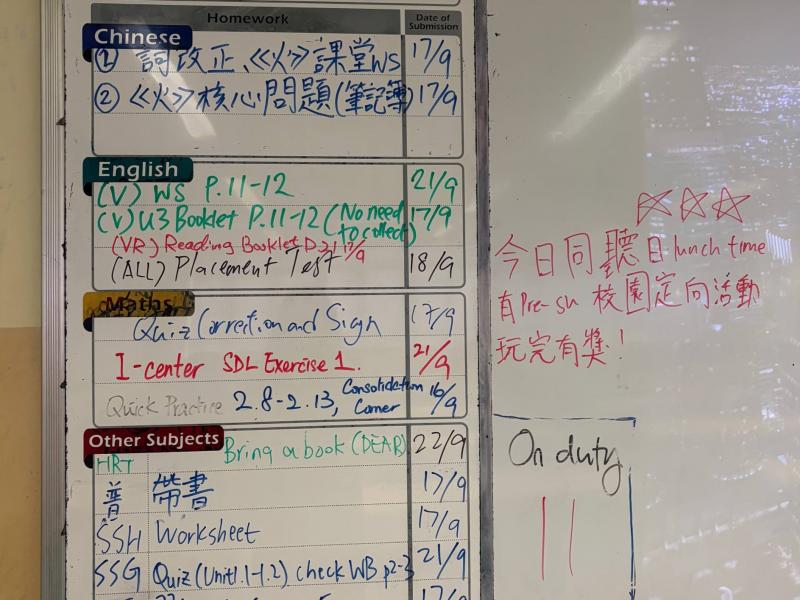 Homework
Date of Submission
Chinese
① 詞改正、《火》課堂WS 17/9
② 《火》核心問題(筆記簿) 17/9
English
(V) WS P.11-12 21/9
(V) U3 Booklet P.11-12 (No need to collect) 17/9
(VR) Reading Booklet 17/9
(ALL) Placement Test 18/9
Maths
Quiz Correction and Sign 17/9
I-center SDL Exercise 1. 21/9
Quick Practice 2.8-2.13, Consolidation Corner 16/9
Other Subjects
HRT Bring a book (DEAR) 22/9
普 帶書 17/9
SSH Worksheet 17/9
SSG Quiz (Unit1.1-1.2) check WB p2-3 21/9
17/9
今日同聽日lunch time
有Pre-su 校園定向活動
玩完有獎!
On duty